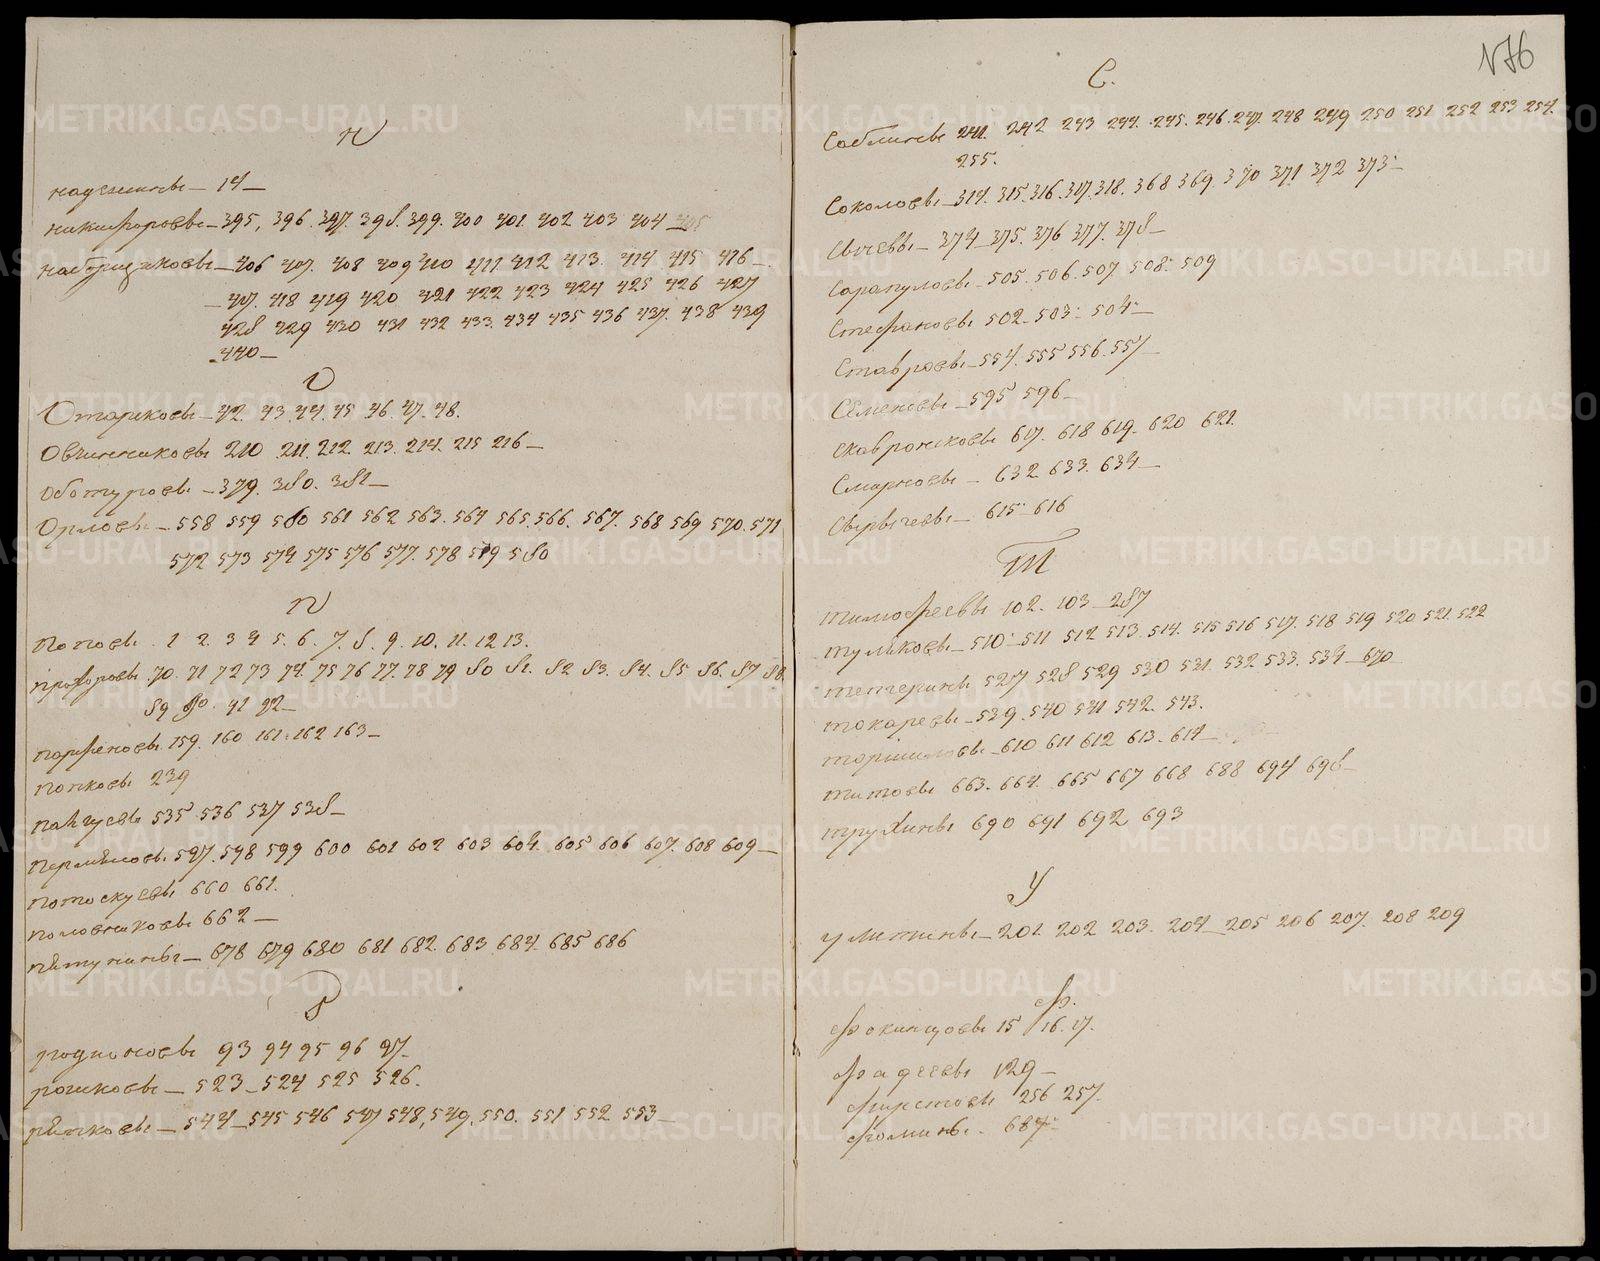 Н
Надеждинвы – 14 –
Никифоровы – 395, 396. 397. 398. 399. 400 401. 402 403 404 – 405
406 407. 408 409 410 411 412 413. 414 415 416 –
– 417. 418 419 420 421 422 423 424 425 426 427
428 429 430 431 432 433. 434 435 436 437. 438 439
440 –
О
Отариковы – 42. 43. 44. 45 46. 47. 48.
Овчинниковы 210 211. 212. 213. 214. 215 216 –
Оботуровы – 379. 380. 381 –
Орловы – 558 559 560 561 562 563. 564 565. 566. 567. 568 569 570. 571
572 573 574 575 576 577. 578 579 580
П
Поповы . 1 2. 3 4 5. 6. 7. 8. 9. 10. 11. 12 13.
Прохоровы 70. 71 72 73 74. 75 76 77. 78 79 80 81. 82 83. 84. 85 86. 87 88.
89 90. 91 92 –
Парфеновы 159. 160 161. 162 163 –
Попковы 239
535 536 537 538 –
Пермяковы 597. 598 599 600 601 602 603 604. 605 606 607. 608 609 –
Потоскуевы 660 661.
Половниковы 662 –
Пятунинвы – 678 679 680 681 682. 683 684. 685 686
Р
Родионовы 93 94 95 96 97 –
Рошковы – 523 – 524 525 526.
Рятковы – 544 – 545 546 547 548, 549. 550. 551 552 553 –
N 76
С.
Саблинвы 241. 242 243 244. 245. 246. 247. 248 249 250 251 252 253 254.
255.
Соколовы – 314. 315. 316. 317. 318. 368 369. 370 371 372 373 –
Сычевы – 374 375. 376 377. 378 –
Сарапуловы – 505. 506. 507 508. 509
Стефановы 502. 503. 504 –
Ставровы – 554. 555 556. 557 –
Семеновы – 595 596 –
Скавронковы 617. 618 619. 620 621.
Смирновы – 632 633. 634 –
– 615 616
Т
Тимофеевы 102. 103 – 287
Тулковы – 510. 511 512 513. 514. 515 516 517. 518 519 520 521. 522
Тетеринвы 527 528 529 530 531. 532 533. 534 – 670
Токаревы – 539. 540 541 542. 543.
– 610 611 612 613. 614 –
Титовы 663. 664. 665 667 668 688 694 698 –
Трухинвы 690 691 692 693
У
Улитинвы – 201. 202 203. 204 – 205 206 207. 208 209
Ф.
Фокинцовы 15 16. 17.
Фадеевы 129 –
Фирстовы 256 257.
Фоминвы . 687.